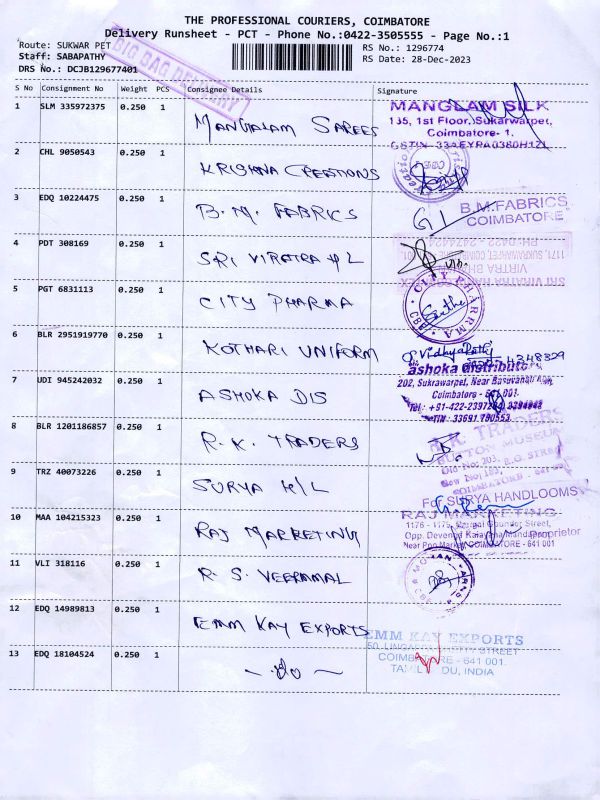 THE PROFESSIONAL COURIERS, COIMBATORE
Delivery Runsheet - PCT - Phone No.:0422-3505555 - Page No.:1
Route: SUKWAR PET
RS No.: 1296774
Staff: SABAPATHY
RS Date: 28-Dec-2023
DRS No.: DCJB129677401
BIG BAG DELIVERY
S No Consignment No Weight PCS Consignee Details Signature
1 SLM 335972375 0.250 1 MANGALAM SAREES
MANGLAM SILK
135, 1st Floor, Sukarwarpet,
Coimbatore- 1.
GSTIN- 33AEYPA0380H1ZL
2 CHL 9050543 0.250 1 KRISHNA CREATIONS
3 EDQ 10224475 0.250 1 B.M. FABRICS
B.M.FABRICS
COIMBATORE
4 PDT 308169 0.250 1 SRI VIRATRA H/L
PH: 0422 - 2474424
1171, SUKRAWARPET, COIMBATORE
SRI VIRATRA HANDLOOM
5 PGT 6831113 0.250 1 CITY PHARMA
CITY PHARMA
CBE
6 BLR 2951919770 0.250 1 KOTHARI UNIFORM
VidhyaPathi
7 UDI 945242032 0.250 1 ASHOKA DIS
ashoka distributors
202, Sukrawarpet, Near Basuvanah
Coimbatore - 641 001.
Tel : +91-422-
TIN: 33691
8 BLR 1201186857 0.250 1 R.K. TRADERS
R.K. TRADERS
BUTTON MUSEUM
Old No: 203,
R.G. STREET
COIMBATORE - 641
9 TRZ 40073226 0.250 1 SURYA H/L
For SURYA HANDLOOMS
Proprietor
10 MAA 104215323 0.250 1 RAJ MARKETING
RAJ MARKETING
1176 - 1179, Gounder Street,
Opp. Devanga Kalayana Mandapam
Near Poo Market, COIMBATORE - 641 001
11 VLI 318116 0.250 1 R. S. VEERAMAL
12 EDQ 14989813 0.250 1 EMM KAY EXPORTS
EMM KAY EXPORTS
STREET
COIMBATORE - 641 001.
TAMIL NADU, INDIA
13 EDQ 18104524 0.250 1